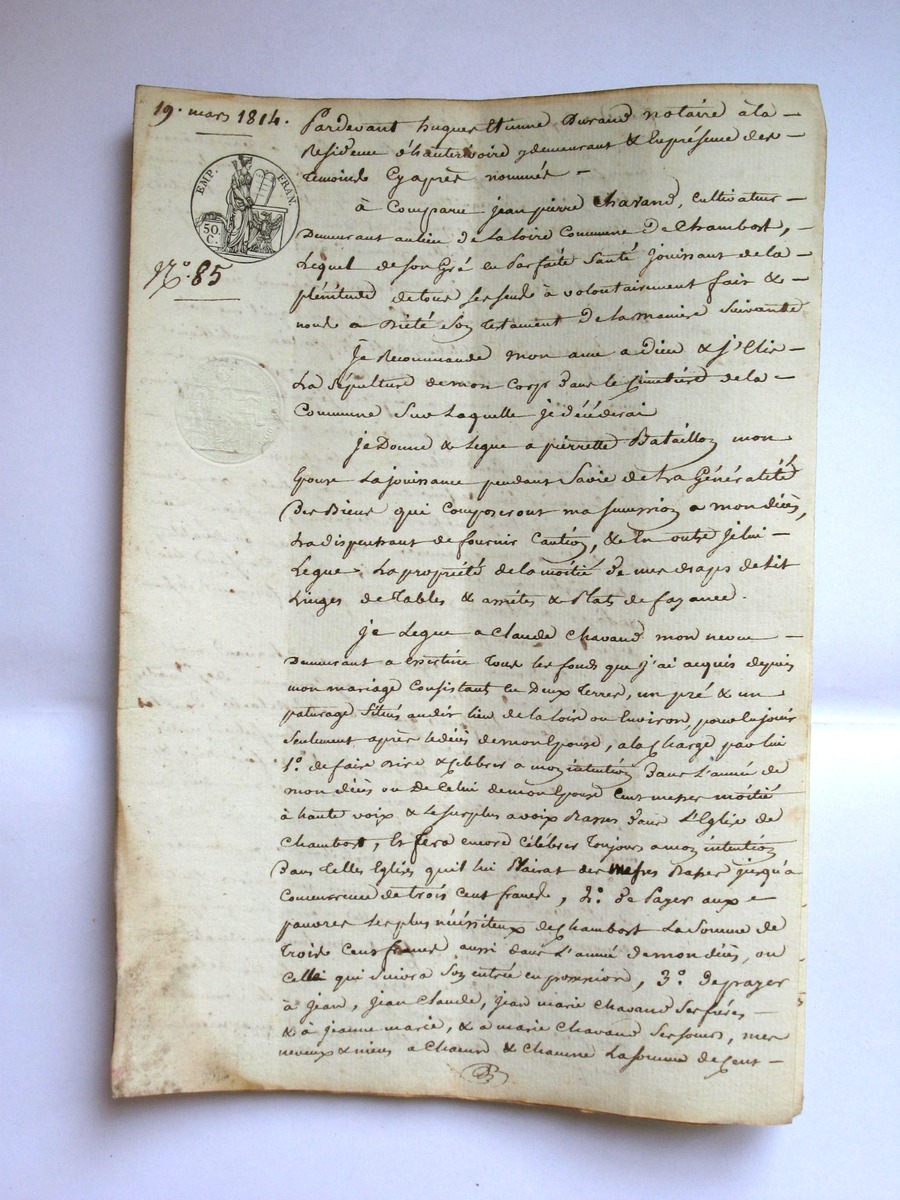 19. mars 1814.
EMP. FRAN.
50 C.
N.º 85
Pardevant hugues Etienne Durand notaire à la
Residence d'hauterivoire y demeurant & En présence des
temoins Cyaprès nommés
à Comparu jean pierre Chavand, Cultivateur
Demeurant au lieu de la loire Commune de Chambost,
Lequel de son Gré en Parfaite Santé jouissant de la
plénitude de tous ses sens à volontairement fait &
nous a Dicté Son testament de la maniere Suivante
Je Recommande mon ame a Dieu & j'Elis
La Sépulture de mon Corps dans le Cimetière de la
Commune Sur Laquelle je décéderai
je Donne & Legue a pierrette Bataillon mon
Epouse La jouissance pendant Savie de La Généralité
Des Biens qui Composeront ma succession a mon décès,
La dispensant de fournir Caution, & En outre je lui
Legue La propriété de la moitié de mes draps de Lit
Linges de Tables & assiètes & Plats de fayance.
je Legue a Claude Chavand mon neveu
Demeurant a tous les fonds que j'ai acquis depuis
mon mariage Consistant en Deux Terres, un pré & un
paturage Situés audit lieu de la loire ou Environ, pour En jouir
Seulement après le décès de mon Epouse, a la Charge par lui
1.º de faire Dire & Célébrer a mon intention Dans L'année de
mon décès ou de Celui de mon Epouse Cent messes moitié
à haute voix & le surplus a voix Basses Dans L'Eglise de
Chambost, Et fera encore Célébrer Toujours a mon intention
Dans telles Eglises quil lui Plairat des messes Basses jusqu'a
Concurrence de trois Cent francs, 2.º De Payer aux
pauvres Les plus nécéssiteux de Chambost La Somme de
Trois Cent francs aussi dans L'année de mon décès, ou
Celle qui Suivra Son entrée en possession, 3.º De payer
à Jean, Jean Claude, jean marie Chavand Ses frères
& à jeanne marie, & a marie Chavand Ses Sœurs, mes
neveux & nieces a Chacun & Chacune La somme de Cent